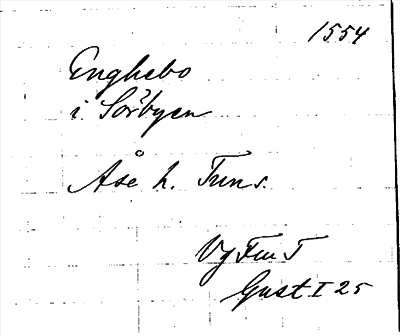 1554
Enghebo
i Sörbyen
Åse h. Tuns.
Vg Fm T
Gust I 25